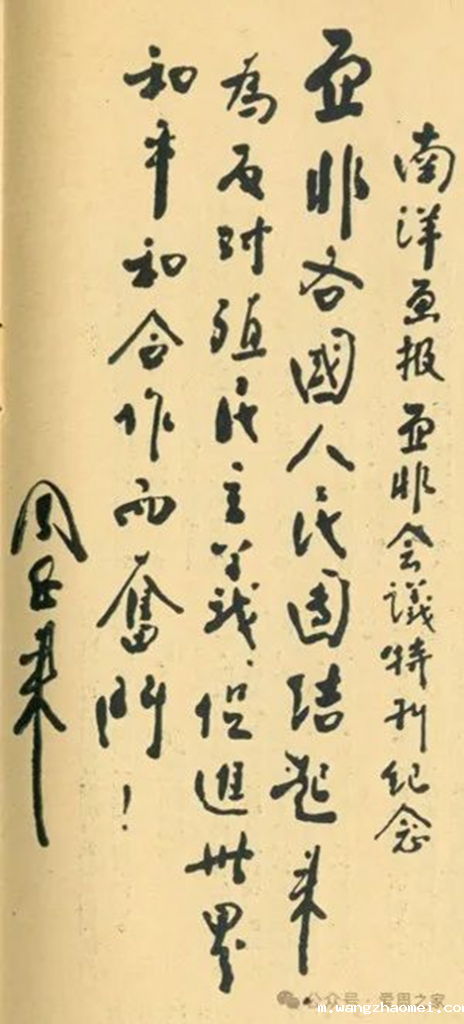 南洋画报亚非会議特刊纪念
亚非各國人民團结起来
為反对殖民主義、促進世界
和平和合作而奮鬥！
周恩来
公众号·爱周之家
m.wangzhaomei.com